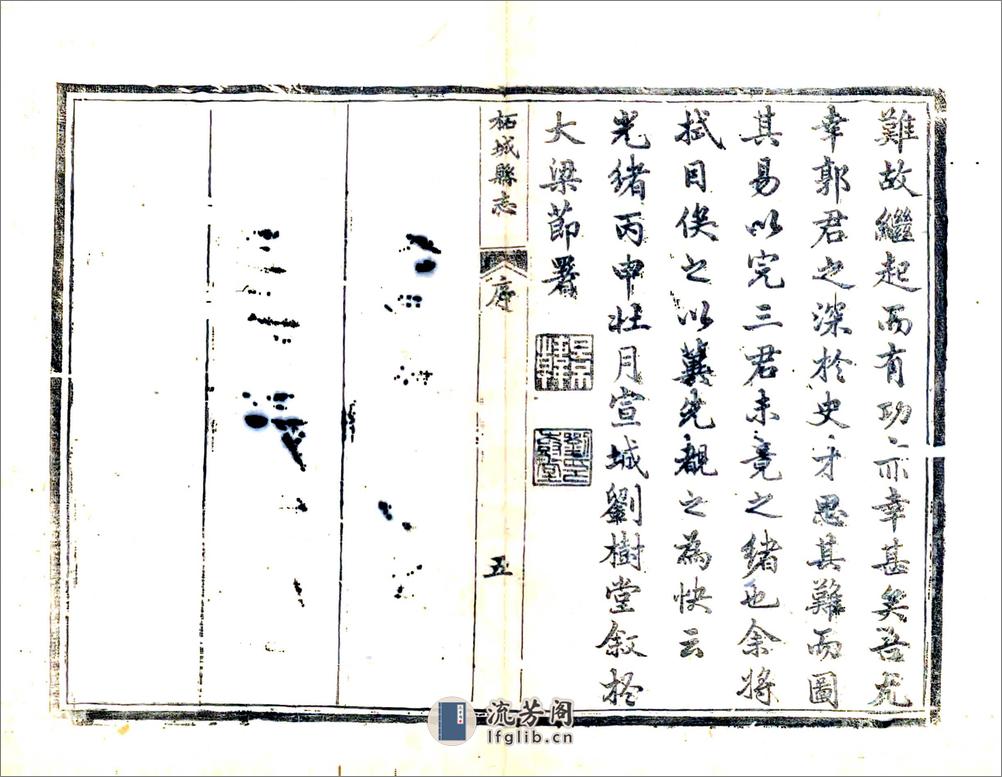 難故繼起而有功亦幸甚矣吾尤
幸郭君之深於史才思其難而圖
其易以完三君未竟之緒也余將
拭目俟之以冀先覩之為快云
光緒丙申壯月宣城劉樹堂敘於
大梁節署
柘城縣志
序
五
流芳阁
lfglib.cn